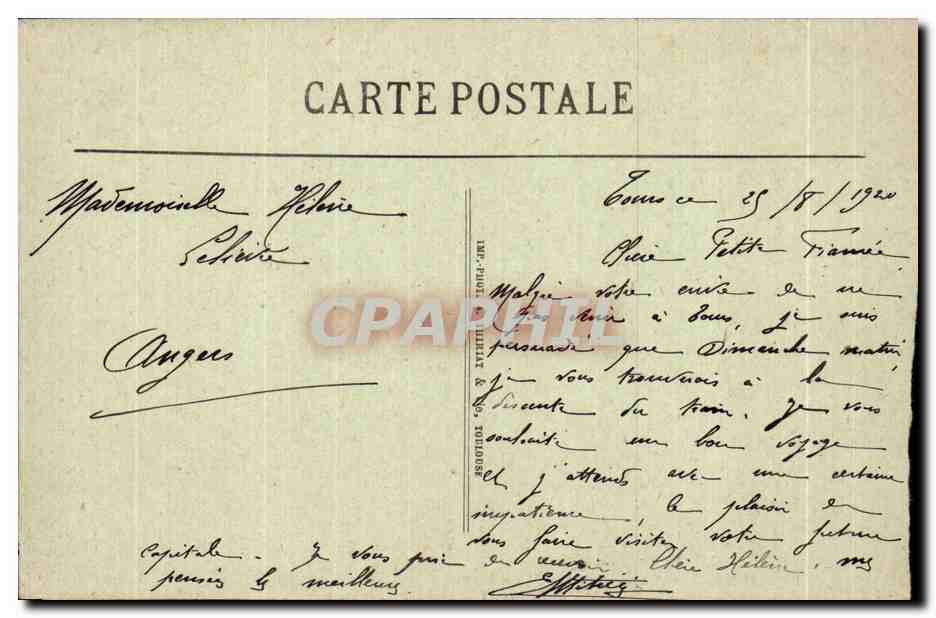 CARTE POSTALE
Mademoiselle Hélène
Angers
Tours ce 25/8/1920
Chère Petite Fiancée
Malgré votre envie de ne
pas venir à Tours, je suis
persuadé que Dimanche matin,
je vous trouverais à la
descente du train. Je vous
souhaite un bon voyage
et j'attends avec une certaine
impatience, le plaisir de
vous faire visiter votre future
capitale. Je vous prie de recevoir Chère Hélène, mes
pensées les meilleures
IMP.-PHOT. THIRIAT & Co, TOULOUSE
CPAPHIL